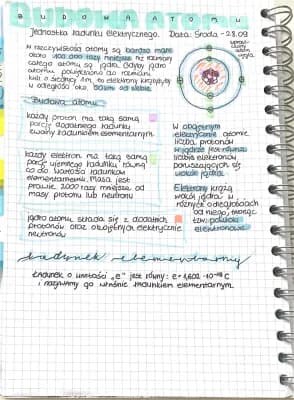 BUDOWA ATOMU
Jednostka ładunku elektrycznego.
Data: Środa - 28.09
W rzeczywistości atomy są bardzo małe
około 100 000 razy mniejsze niż rozmiary
całego atomu są jądra. Gdyby jądro
atomu powiększono do rozmiaru
kuli o średnicy 1m, to elektrony krążyłyby
w odległości około 50km od siebie.
Budowa atomu
każdy proton ma taką samą
porcję dodatniego ładunku
zwany ładunkiem elementarnym
każdy elektron ma taką samą
porcję ujemnego ładunku, równą
co do wartości ładunkowi
elementarnemu. Masa jest
prawie 2000 razy mniejsza od
masy protonu lub neutronu
jądro atomu składa się z dodatnich
protonów oraz obojętnych elektrycznie
neutronów
W obojętnym
elektrycznie atomie
liczba protonów
w jądrze jest równa
liczbie elektronów
poruszających się
wokół jądra
Elektrony krążą
wokół jądra w
różnych odległościach
od niego, tworząc
tzw. powłoki
elektronowe
ładunek elementarny
Ładunek o wartości „e" jest równy: e = 1,602 · 10⁻¹⁹ C
i nazywamy go właśnie ładunkiem elementarnym.